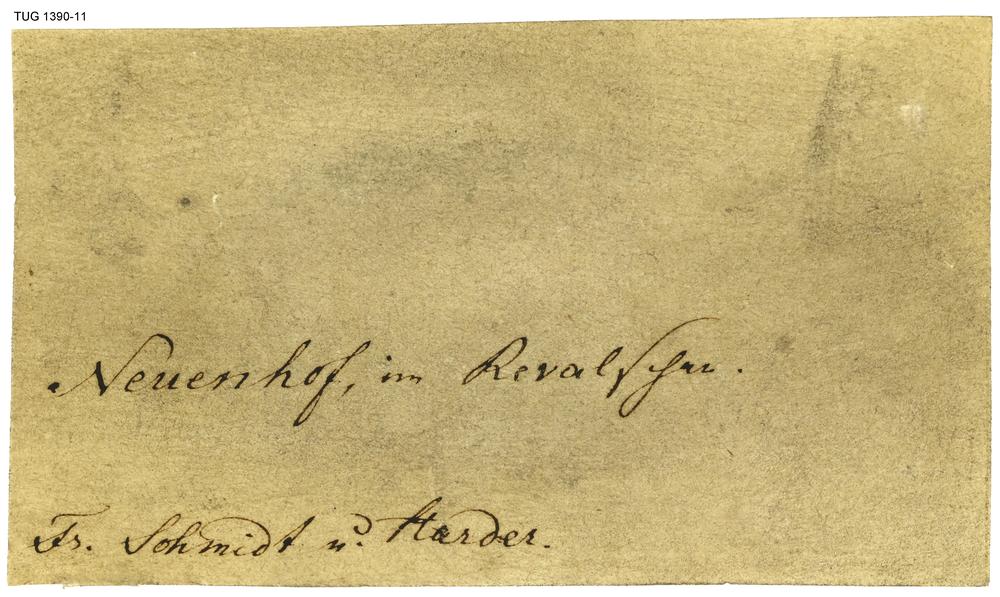 TUG 1390-11
Neuenhof, im Revalschen.
Fr. Schmidt u. Harder.